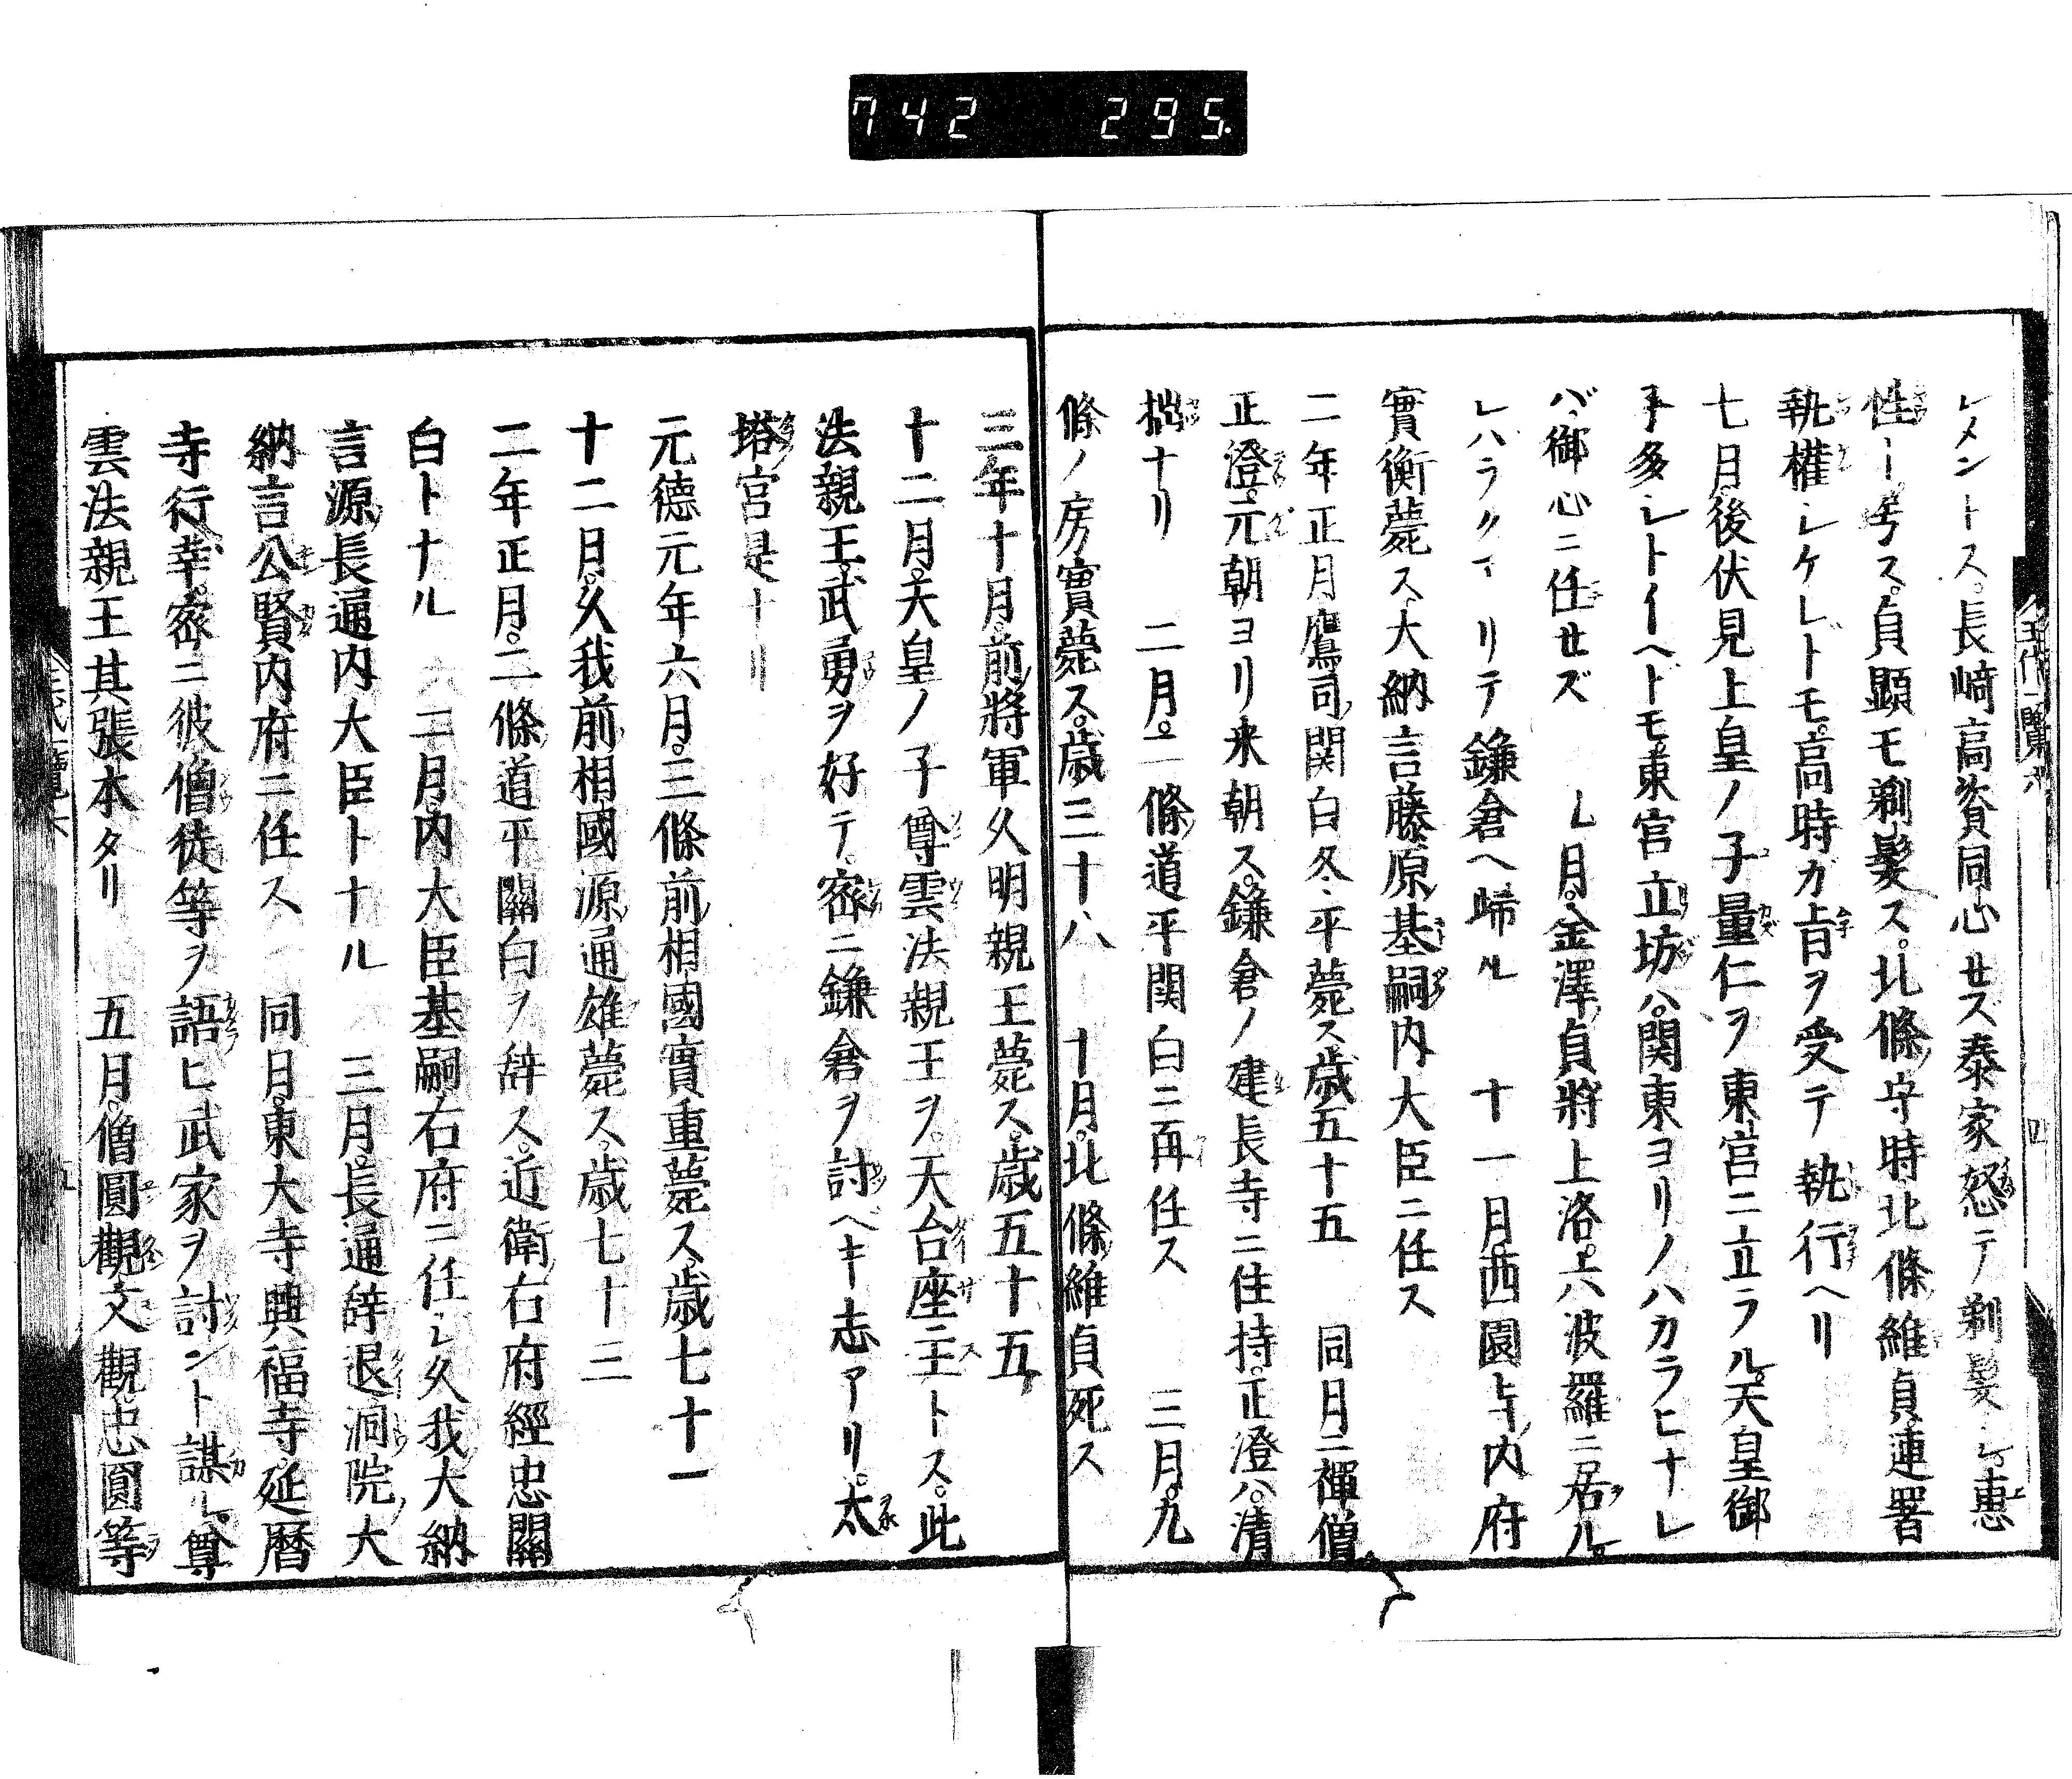 742 295
レメントス。長崎高資同心セズ泰家怒テ剃髪シ。惠
性ト号ス。貞顕モ剃髪ス。北條守時北條維貞。連署
執權シケレドモ。高時ガ旨ヲ受テ執行ヘリ
七月。後伏見上皇ノ子量仁ヲ東宮ニ立ラル。天皇御
子多シトイヘトモ。東宮立坊ハ。関東ヨリノハカラヒナレ
バ。御心ニ任セズ 七月。金澤貞將上洛。六波羅ニ居ル。
シハラクアリテ鎌倉ヘ帰ル 十一月。西園寺内府
實衡薨ス。大納言藤原基嗣内大臣ニ任ス
二年正月鷹司関白冬平薨ス。歳五十五 同月ニ禪僧
正澄。元朝ヨリ来朝ス。鎌倉ノ建長寺ニ住持。正澄ハ。清
拙ナリ 二月。二條道平関白ニ再任ス 三月。九
條ノ房實薨ス。歳三十八 十月。北條維貞死ス
三年十月。前將軍久明親王薨ス。歳五十五
十二月。天皇ノ子尊雲法親王ヲ。天台座主トス。此
法親王。武勇ヲ好テ。密ニ鎌倉ヲ討ベキ志アリ。大
塔宮是ナリ
元德元年六月。三條前相國實重薨ス。歳七十一
十二月。久我前相國源通雄薨ス。歳七十三
二年正月。二條道平關白ヲ辞ス。近衛右府經忠關
白トナル 二月。内大臣基嗣右府ニ任シ久我大納
言源長通内大臣トナル 三月。長通辞退洞院大
納言公賢内府ニ任ス 同月。東大寺興福寺延暦
寺行幸。密ニ彼僧徒等ヲ語ヒ武家ヲ討ント謀ル。尊
雲法親王其張本タリ 五月。僧圓觀文觀。忠圓等